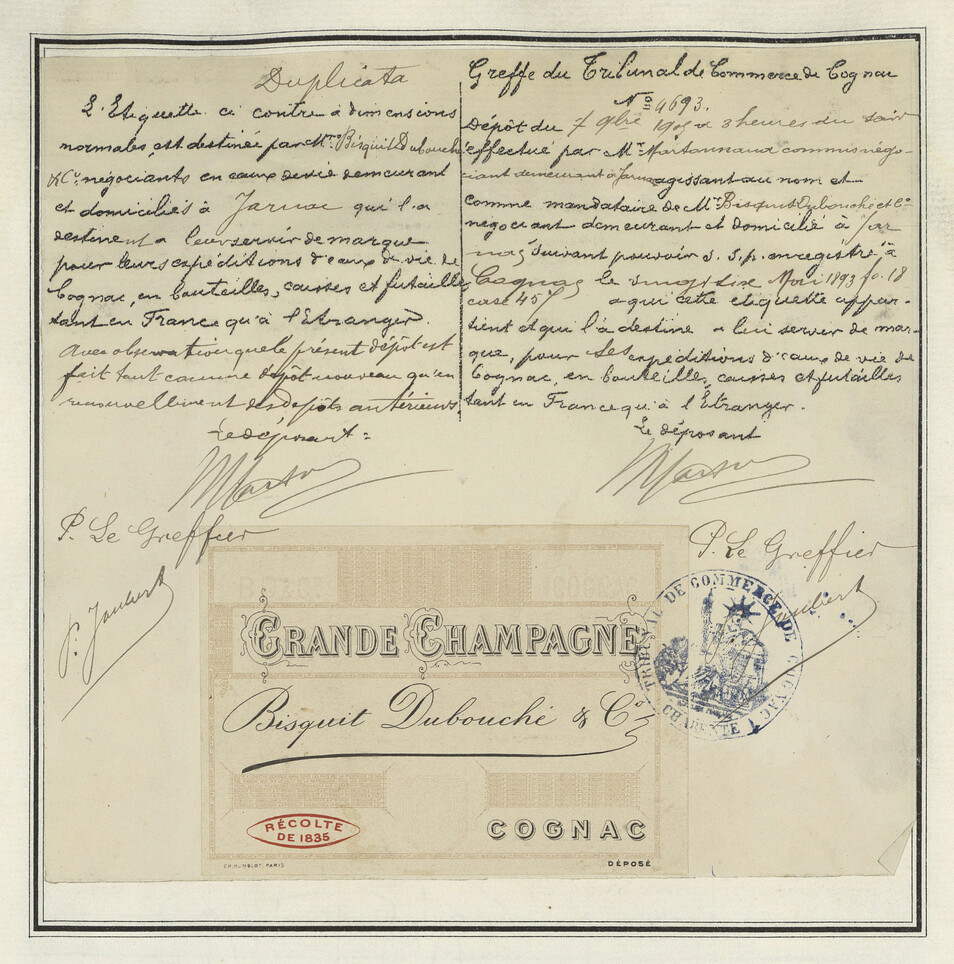 Duplicata
L'Etiquette ci contre à dimensions
normales, est destinée par Mrs Bisquit Dubouché
& Co négociants en eaux de vie demeurant
et domiciliés à Jarnac qui l'a
destinent a leur servir de marque
pour leurs expéditions d'eaux de vie de
Cognac, en bouteilles, caisses et futailles
tant en France qu'à l'Etranger.
Avec observation que le présent dépôt est
fait tant comme dépôt nouveau qu'en
renouvellement des dépôts antérieurs.
Le déposant :
P. Le Greffier
P. Joubert
Greffe du Tribunal de Commerce de Cognac
No 4693.
Dépôt du 7 9bre 1905 à 3 heures du soir
effectué par Mr commis négo-
ciant demeurant à Jarnac agissant au nom et
comme mandataire de Mrs Bisquit Dubouché et Co
négociant demeurant et domicilié à Jar
nac suivant pouvoir s. s. p. enregistré à
Cognac le vingt six Mai 1893 fo 18
case 457 a qui cette etiquette appar-
tient et qui l'a destine a lui servir de mar-
que, pour ses expéditions d'eaux de vie de
Cognac, en bouteilles, caisses et futailles
tant en France qu'à l'Étranger.
Le déposant
P. Le Greffier
Joubert
TRIBUNAL DE COMMERCE DE COGNAC
CHARENTE
GRANDE CHAMPAGNE
Bisquit Dubouché & Co
RÉCOLTE
DE 1835
COGNAC
DÉPOSÉ